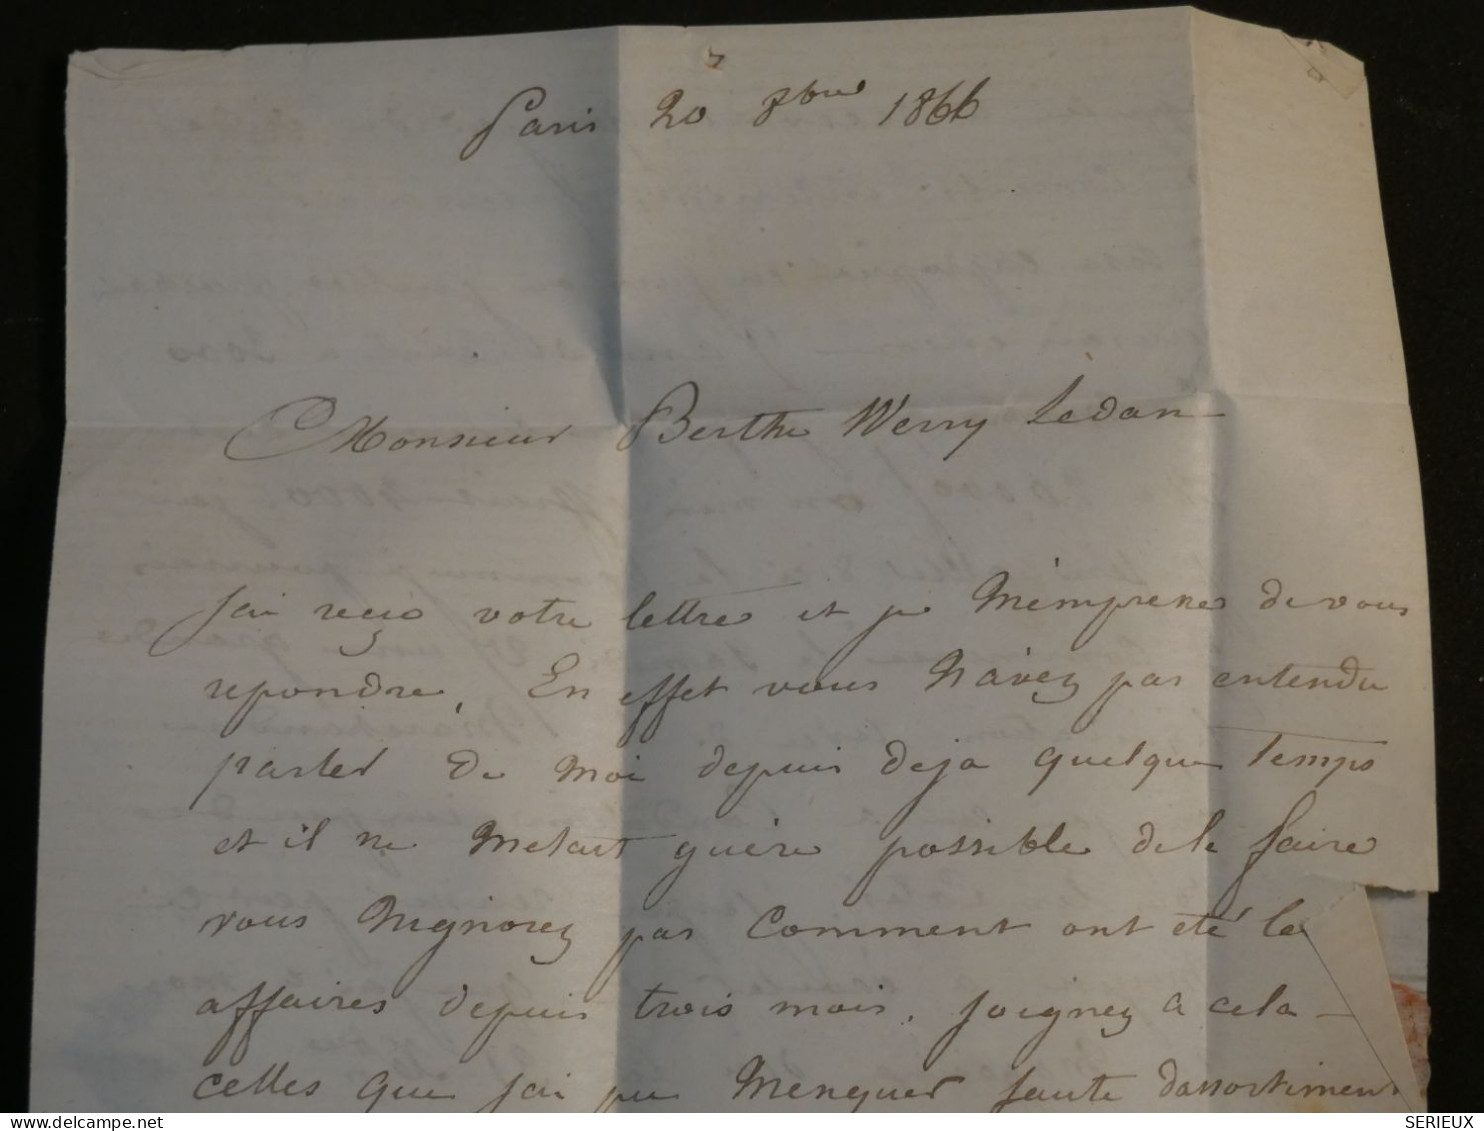 Paris 20 8bre 1866
Monsieur Berthe Werry Sedan
J'ai reçu votre lettre et je M'emprese de vous
repondre, En effet vous N'avez pas entendu
parler de moi depuis deja quelque temps
et il ne Metait guère possible de le faire
vous N'ignorez pas Comment ont été les
affaires depuis trois mois. Joignez a cela
celles que j'ai pu Menquer faute d'assortiment
SERIEUX